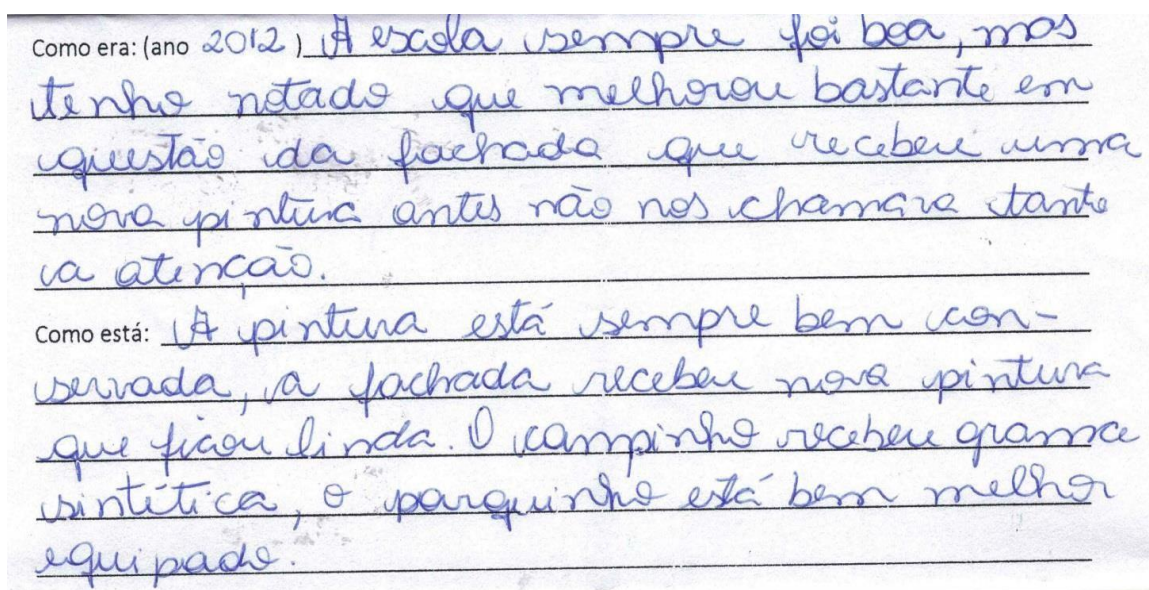 Como era: (ano 2012) A escola sempre foi boa, mas
tenho notado que melhorou bastante em
questão da fachada que recebeu uma
nova pintura antes não nos chamava tanto
a atenção.
Como está: A pintura está sempre bem con-
servada, a fachada recebeu nova pintura
que ficou linda. O campinho recebeu grama
sintética, o parquinho está bem melhor
equipado.